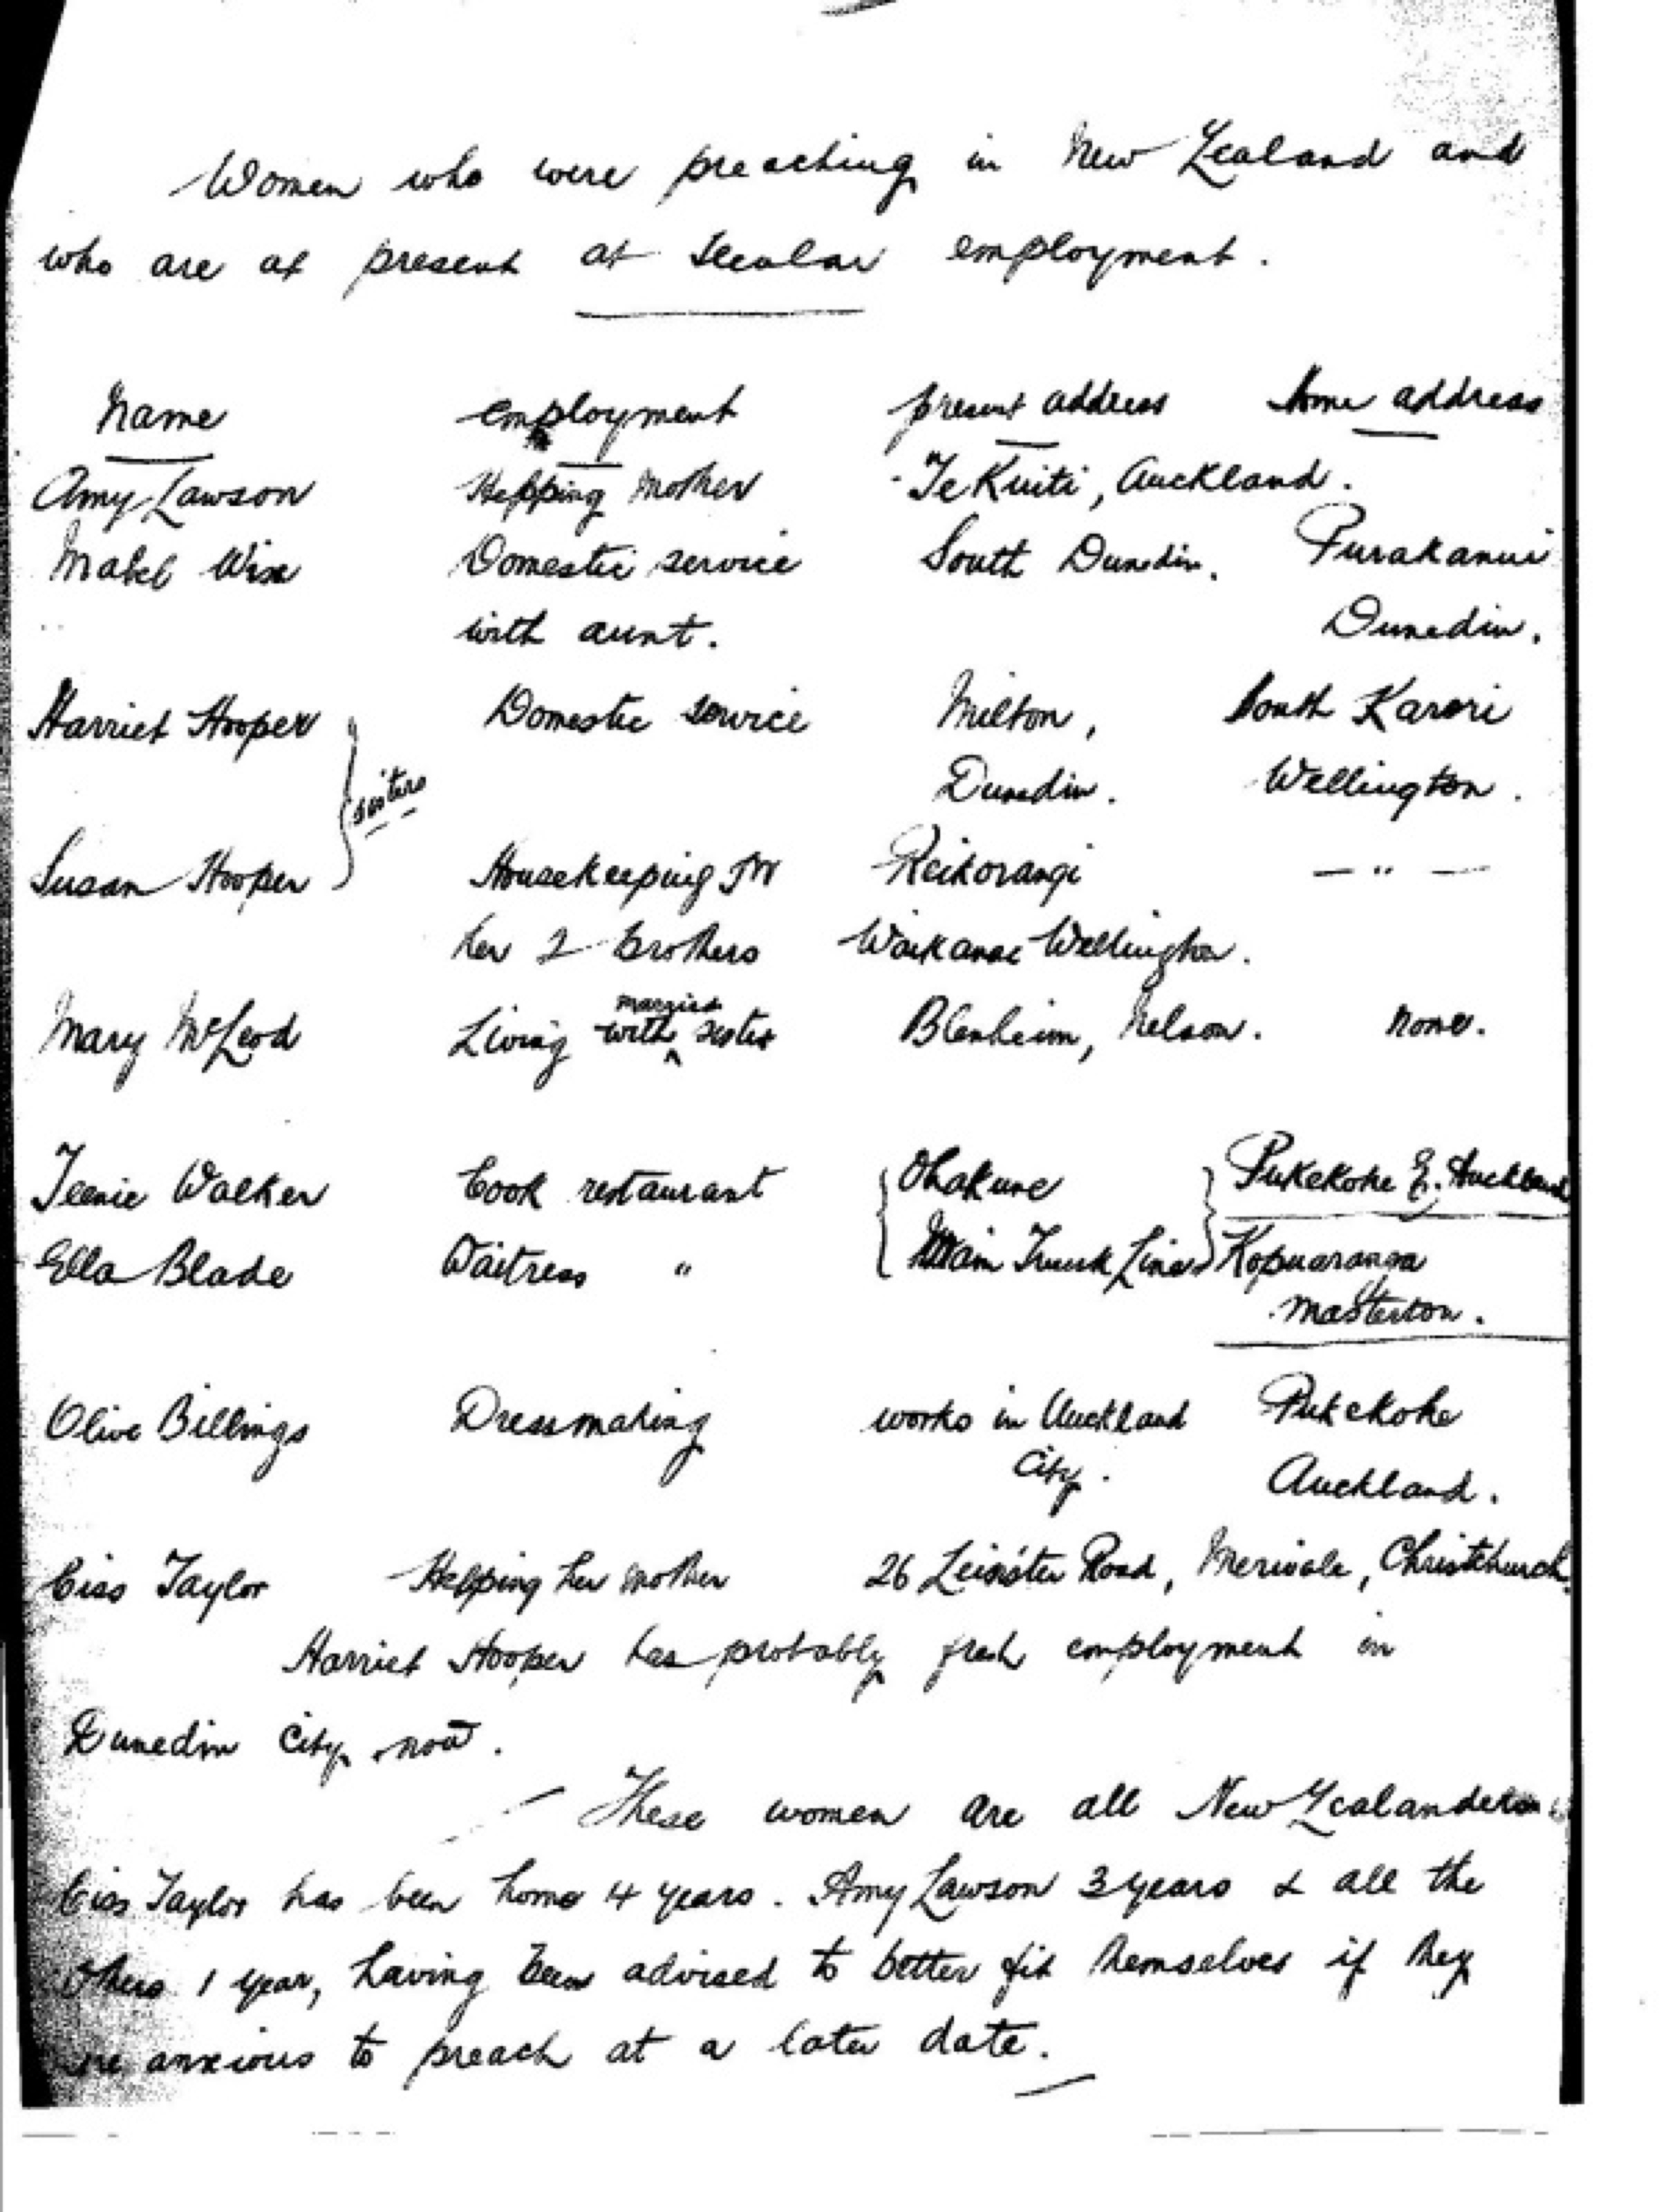 Women who were preaching in New Zealand and
who are at present at secular employment.
Name employment present address home address
Amy Lawson Helping mother Te Kuiti, Auckland.
Mabel Wise Domestic service South Dunedin. Purakanui
with aunt. Dunedin.
Harriet Hooper Domestic service Milton, South Karori
sisters Dunedin. Wellington.
Susan Hooper Housekeeping for Reikorangi — " —
her 2 brothers Waikanae Wellington.
Mary McLeod Living with married sister Blenheim, Nelson. none.
Teenie Walker Cook restaurant Ohakune Pukekohe E. Auckland
Ella Blade Waitress " Main Trunk Line Kopuaranga
Masterton.
Olive Billings Dressmaking works in Auckland Pukekohe
City. Auckland.
Ciss Taylor Helping her mother 26 Leister Road, Merivale, Christchurch.
Harriet Hooper has probably fresh employment in
Dunedin City now.
These women are all New Zealanders
Ciss Taylor has been home 4 years. Amy Lawson 3 years & all the
others 1 year, having been advised to better fit themselves if they
are anxious to preach at a later date.